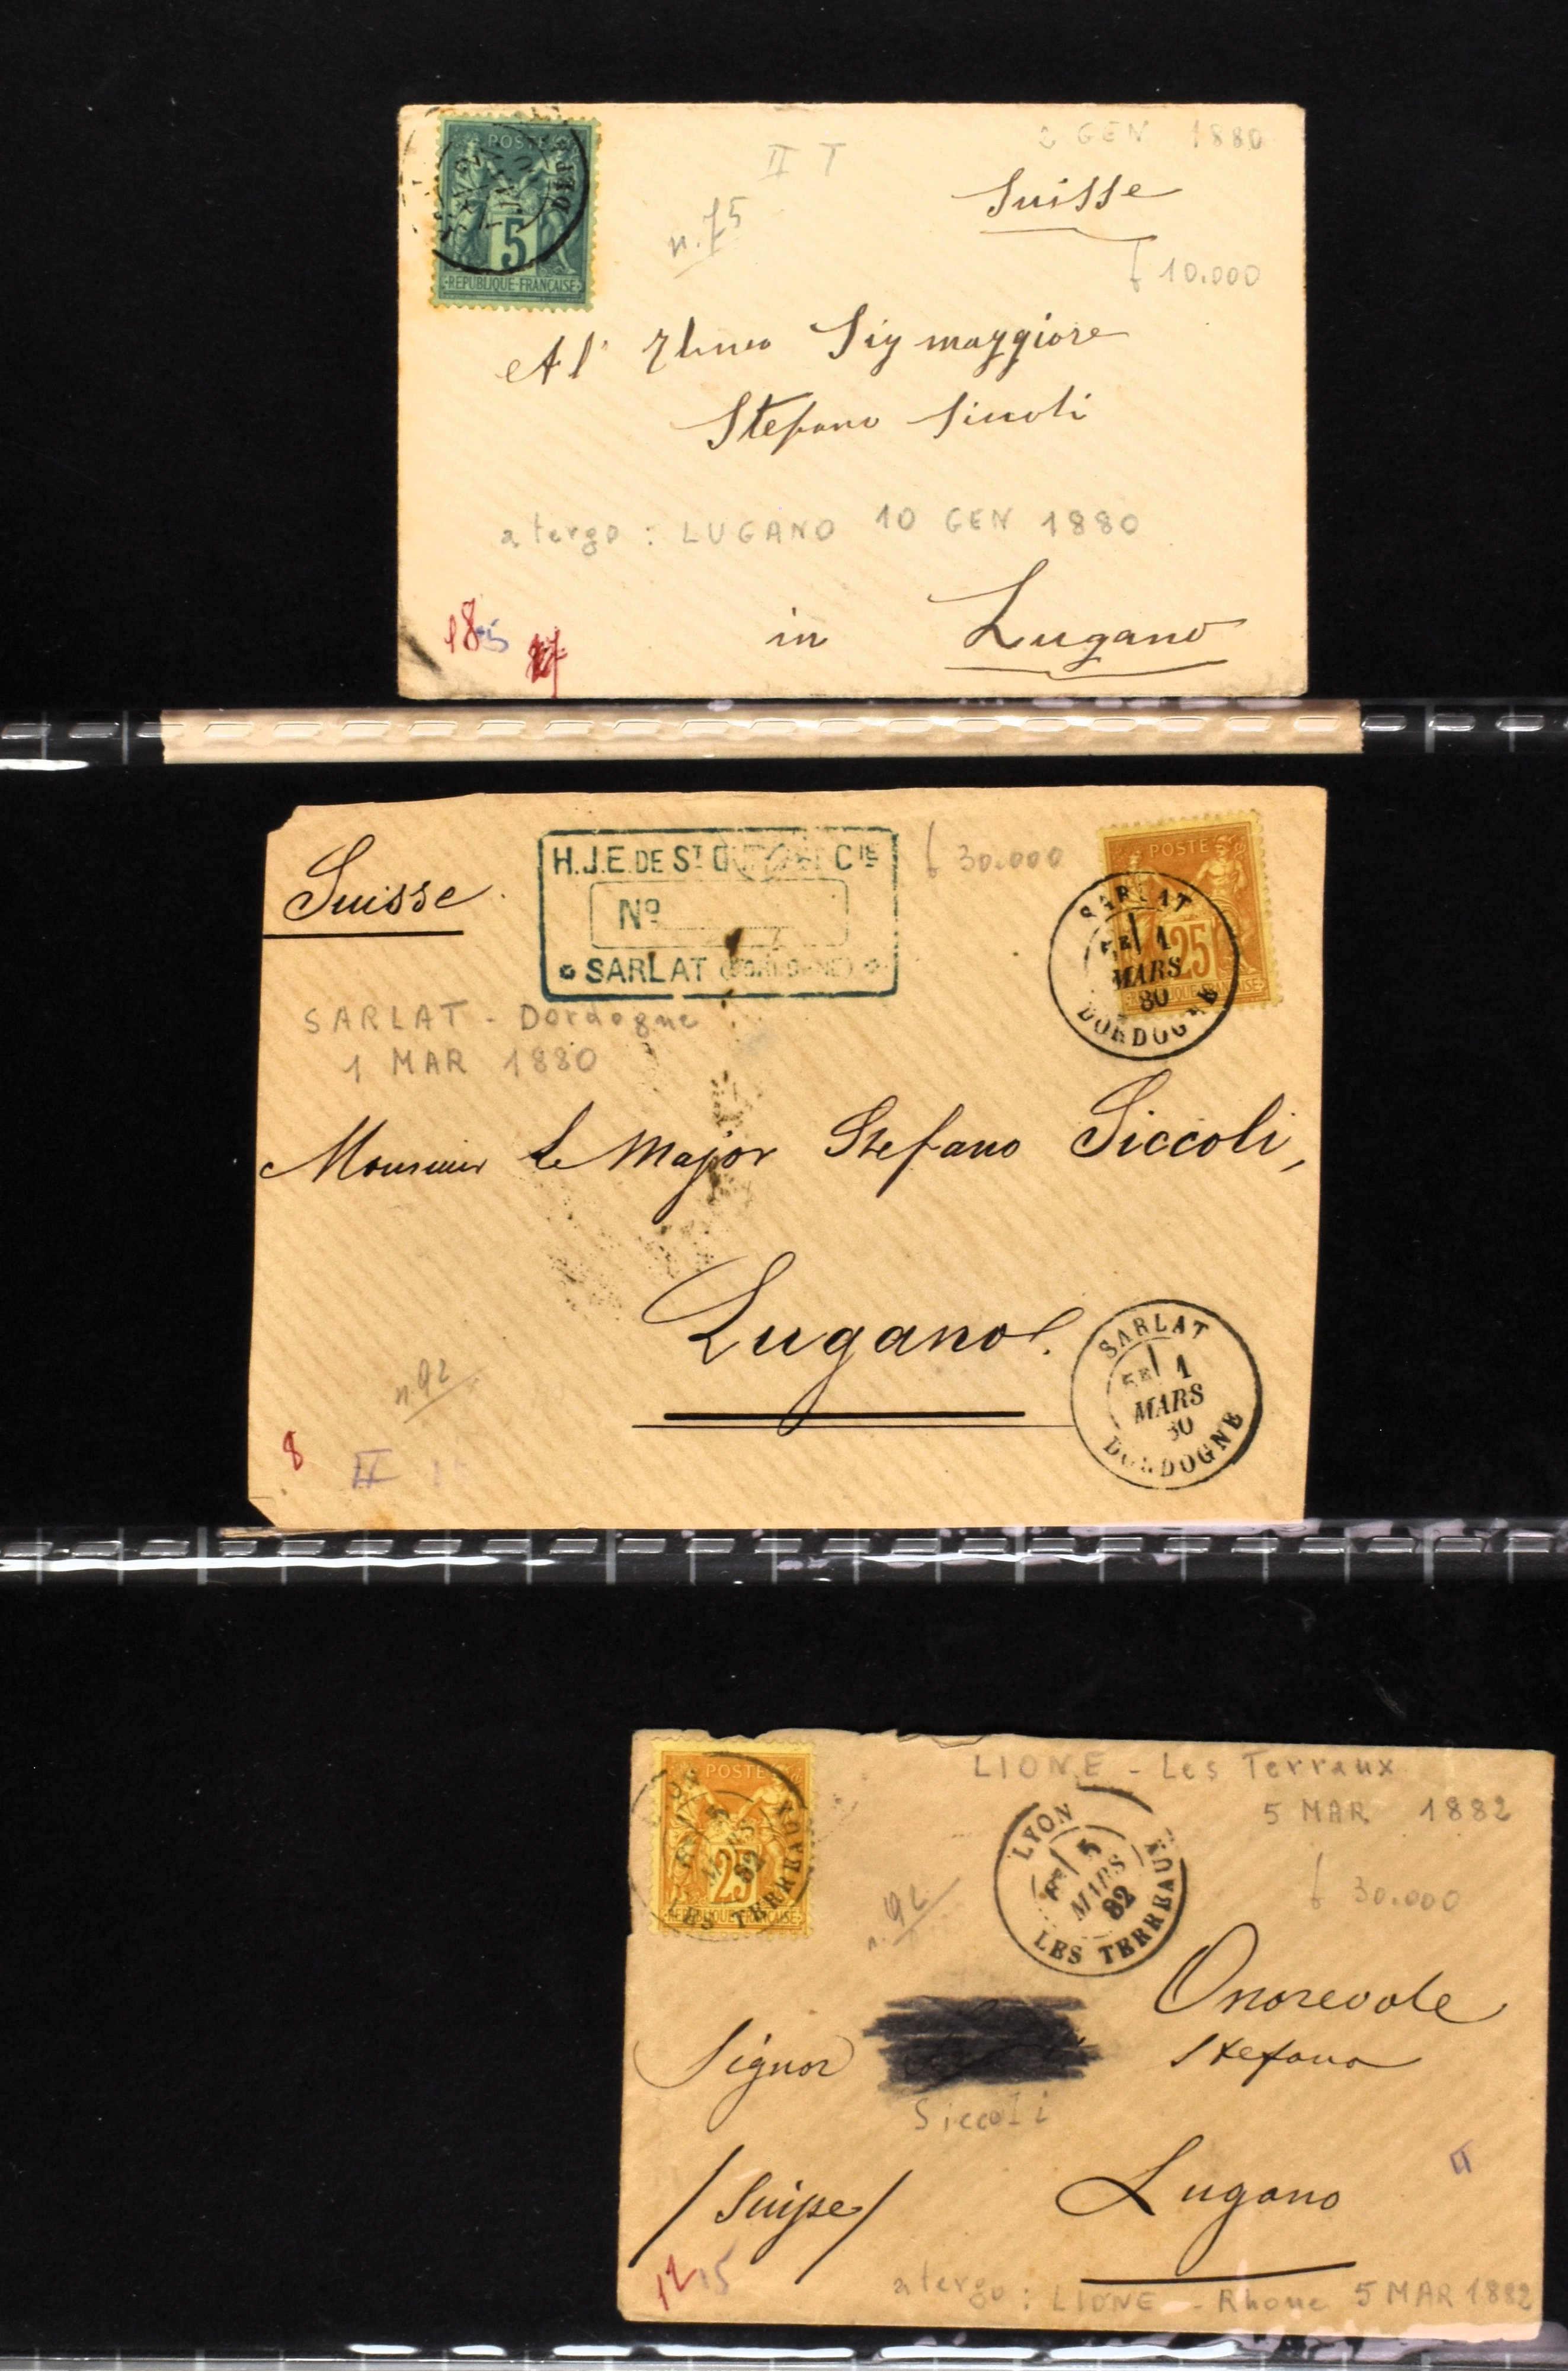 POSTE
5
REPUBLIQUE FRANÇAISE
II T
2 GEN 1880
Suisse
n. 75
10.000
Al' Sig maggiore
Stefano Siccoli
a tergo: LUGANO 10 GEN 1880
in Lugano
18
Suisse
H.J.E. DE ST Cie
No
SARLAT (DORDOGNE)
30.000
POSTE
25
SARLAT
5E 1
MARS
80
DORDOGNE
SARLAT - Dordogne
1 MAR 1880
Monsieur Le Major Stefano Siccoli,
Lugano.
n. 92
8
II
SARLAT
5E 1
MARS
80
DORDOGNE
POSTE
25
REPUBLIQUE FRANÇAISE
5
MARS
82
LES TERREAUX
LIONE - Les Terraux
5 MAR 1882
LYON
5
MARS
82
LES TERREAUX
n. 92
30.000
Onorevole
Signor Stefano
Siccoli
/Suisse/ Lugano
II
12 15
a tergo: LIONE - Rhone 5 MAR 1882